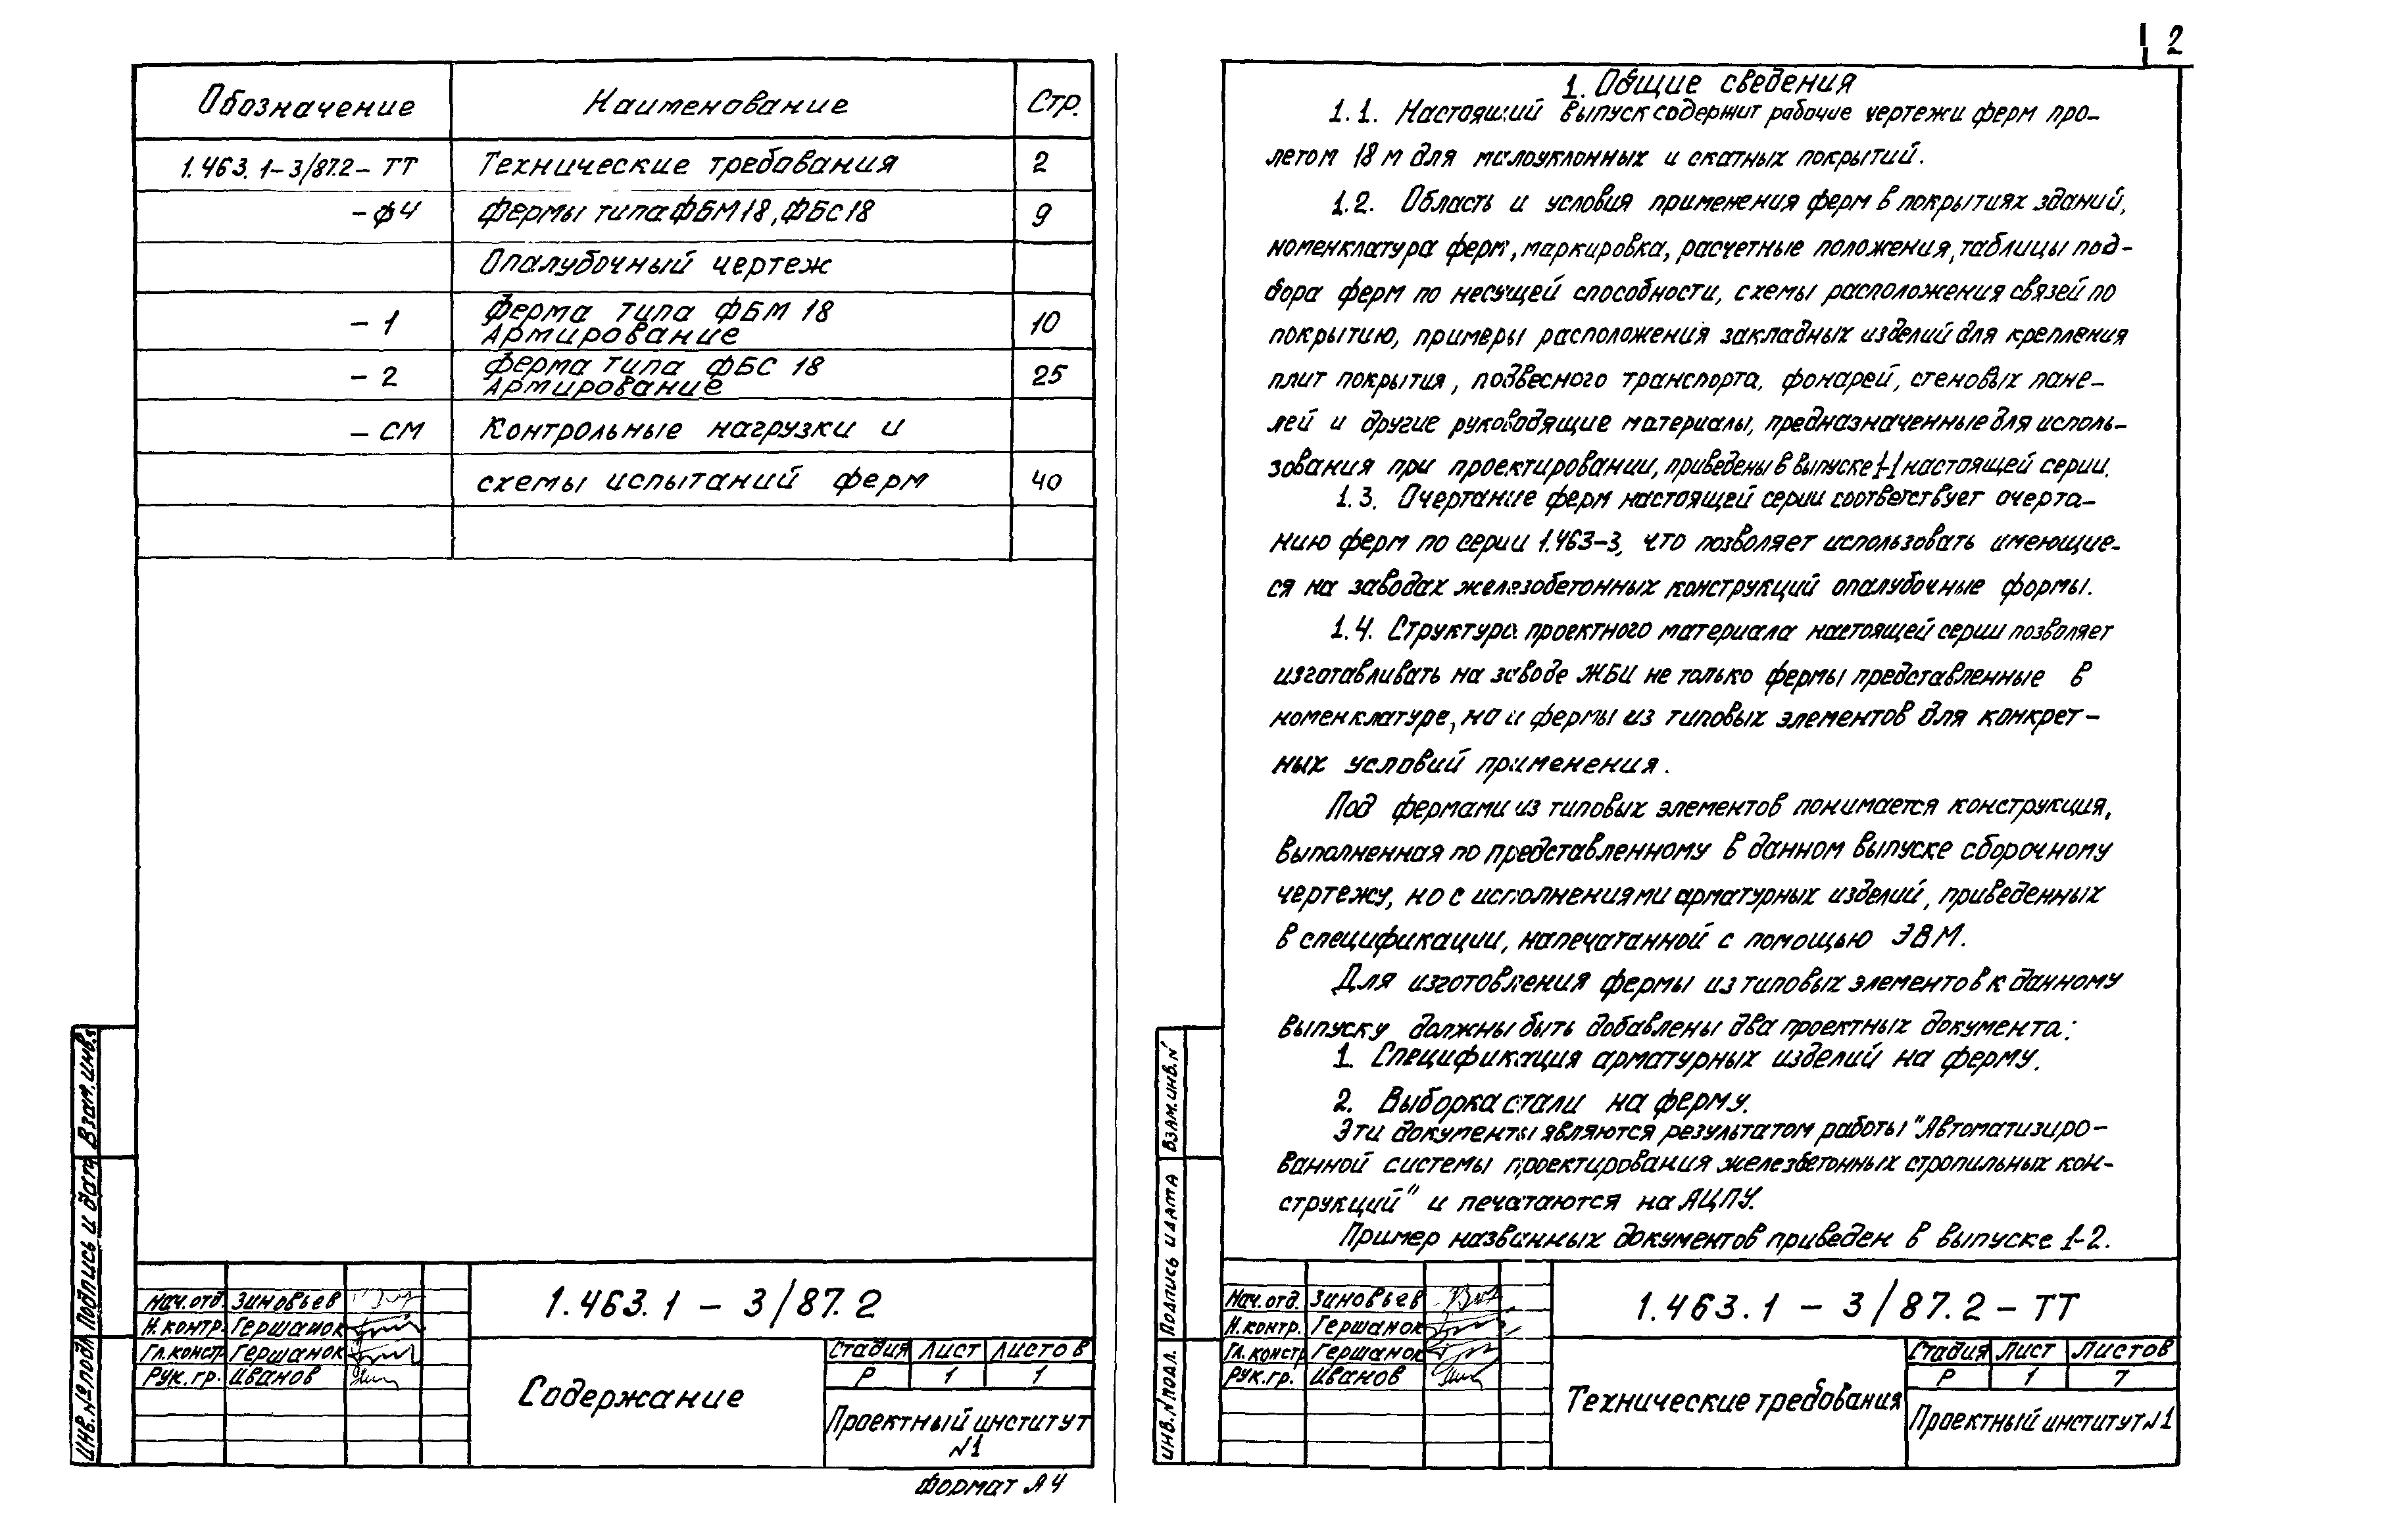 Обозначение Наименование Стр.
1.463.1-3/87.2-ТТ Технические требования 2
-ФЧ Фермы типа ФБМ18, ФБС18 9
Опалубочный чертеж
-1 Ферма типа ФБМ 18 10
Армирование
-2 Ферма типа ФБС 18 25
Армирование
-СМ Контрольные нагрузки и
схемы испытаний ферм 40
Взам.инв.
Подпись и дата
Инв.№подл.
Нач.отд. Зиновьев
Н.контр. Гершанок
Гл.констр Гершанок
Рук.гр. Иванов
1.463.1-3/87.2
Содержание
Стадия Лист Листов
Р 1 1
Проектный институт
№1
Формат А4
2
1. Общие сведения
1.1. Настоящий выпуск содержит рабочие чертежи ферм про-
летом 18 м для малоуклонных и скатных покрытий.
1.2. Область и условия применения ферм в покрытиях зданий,
номенклатура ферм, маркировка, расчетные положения, таблицы под-
бора ферм по несущей способности, схемы расположения связей по
покрытию, примеры расположения закладных изделий для крепления
плит покрытия, подвесного транспорта, фонарей, стеновых пане-
лей и другие руководящие материалы, предназначенные для исполь-
зования при проектировании, приведены в выпуске 1-1 настоящей серии.
1.3. Очертание ферм настоящей серии соответствует очерта-
нию ферм по серии 1.463-3, что позволяет использовать имеющие-
ся на заводах железобетонных конструкций опалубочные формы.
1.4. Структура проектного материала настоящей серии позволяет
изготавливать на заводе ЖБИ не только фермы представленные в
номенклатуре, но и фермы из типовых элементов для конкрет-
ных условий применения.
Под фермами из типовых элементов понимается конструкция,
выполненная по представленному в данном выпуске сборочному
чертежу, но с исполнениями арматурных изделий, приведенных
в спецификации, напечатанной с помощью ЭВМ.
Для изготовления фермы из типовых элементов к данному
выпуску должны быть добавлены два проектных документа:
1. Спецификация арматурных изделий на ферму.
2. Выборка стали на ферму.
Эти документы являются результатом работы "Автоматизиро-
ванной системы проектирования железбетонных стропильных кон-
струкций" и печатаются на АЦПУ.
Пример названных документов приведен в выпуске 1-2.
Взам.инв.N
Подпись и дата
Инв.Nподл.
Нач.отд. Зиновьев
Н.контр. Гершанок
Гл.констр Гершанок
Рук.гр. Иванов
1.463.1-3/87.2-ТТ
Технические требования
Стадия Лист Листов
Р 1 7
Проектный институт N1